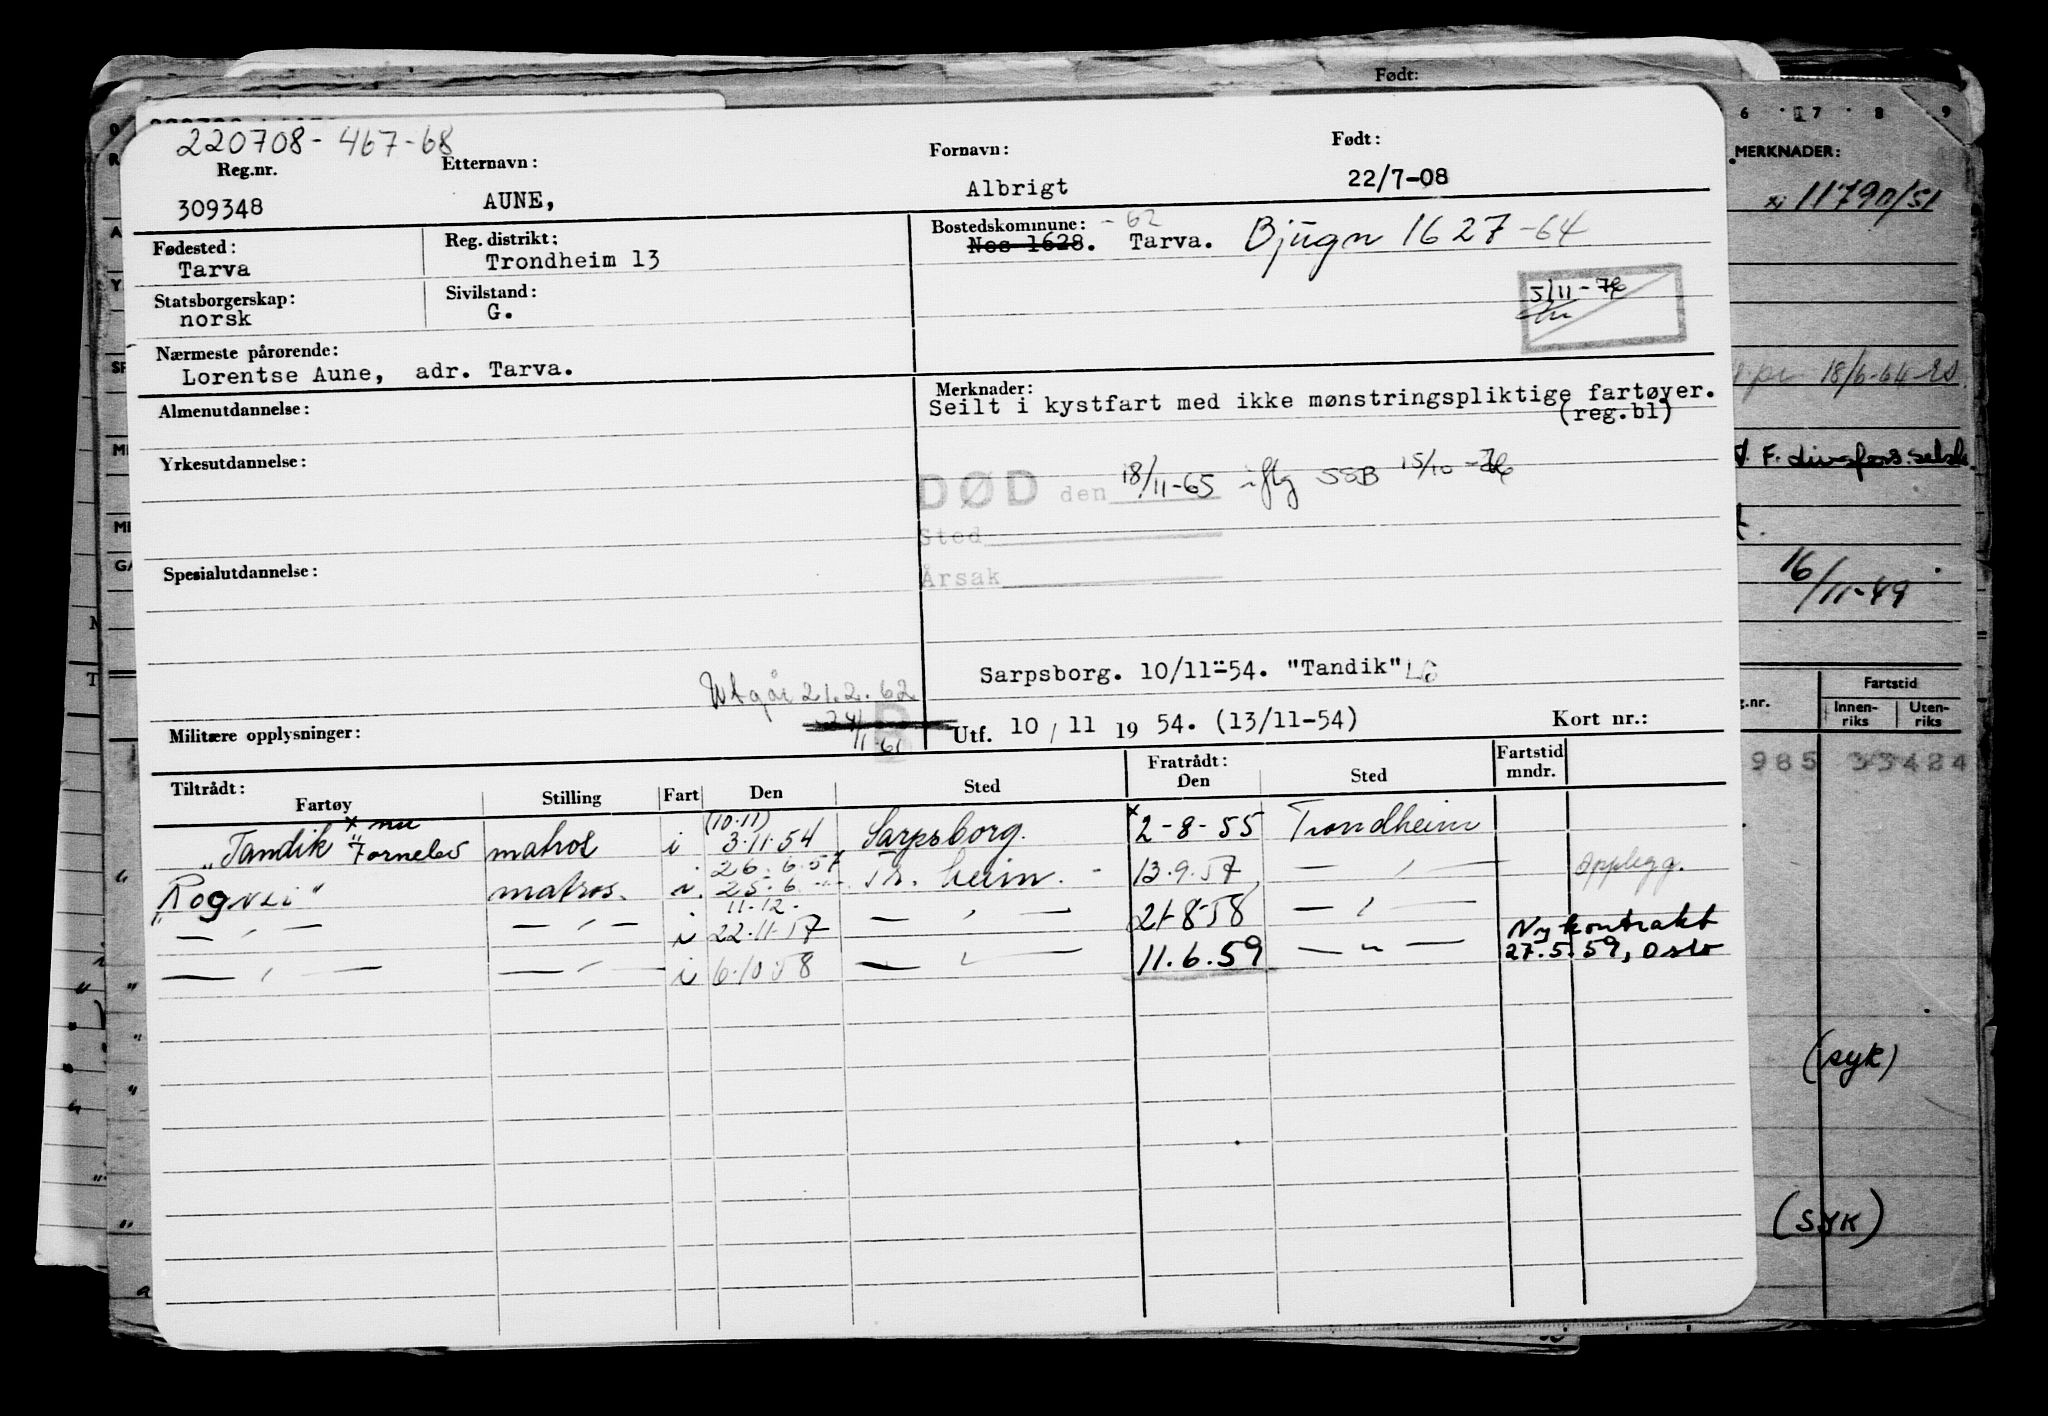 Født:
220708-467-68
Reg.nr. Etternavn: Fornavn: Født:
309348 AUNE, Albrigt 22/7-08
Fødested: Reg. distrikt: Bostedskommune: -62
Tarva Trondheim 13 Nes 1628. Tarva. Bjugn 1627-64
Statsborgerskap: Sivilstand:
norsk G.
5/11-76
Nærmeste pårørende:
Lorentse Aune, adr. Tarva.
Almenutdannelse: Merknader:
Seilt i kystfart med ikke mønstringspliktige fartøyer.
(reg.bl)
Yrkesutdannelse:
DØD den 18/11-65 iflg SSB 15/10-76
Sted
Årsak
Spesialutdannelse:
Sarpsborg. 10/11-54. "Tandik"
Utgår 21.2.62
Militære opplysninger: Utf. 10/11 19 54. (13/11-54) Kort nr.:
Tiltrådt: Fratrådt: Fartstid
Fartøy Stilling Fart Den Sted Den Sted mndr.
x nu (10.11)
"Tandik" Fornelev matros i 3.11.54 Sarpsborg. x 2-8-55 Trondheim
26.6.57
"Rogvei" matros. i 25.6 -"- Tr.heim. 13.9.57 — " — opplegg.
11.12.
— " — — " — i 22.11.57 — " — 21-8-58 — " — Ny kontrakt
— " — — " — i 6.10.58 — " — 11.6.59 — " — 27.5.59, Oslo
6 7 8 9
MERKNADER:
11790/51
18/6-64
16/11-49
Fartstid
Innen-riks Uten-riks
985 33424
(syk)
(SYK)